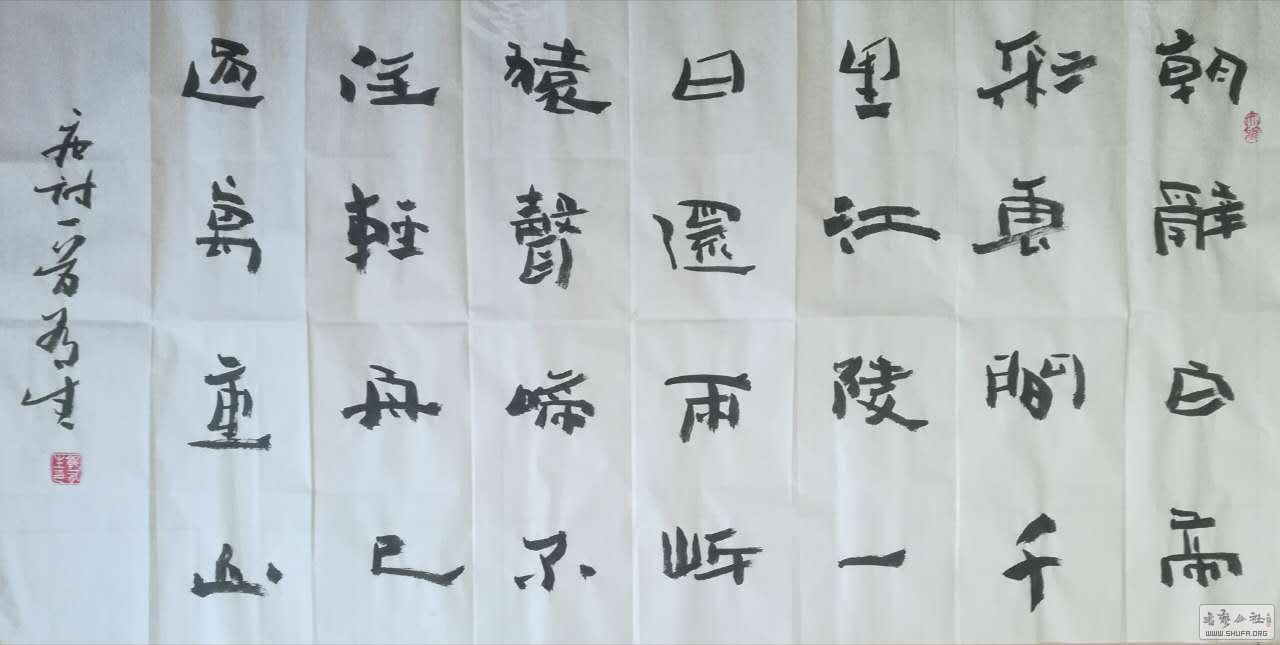 朝辭白帝
彩雲間千
里江陵一
日還兩岸
猿聲啼不
住輕舟已
過萬重山
唐詩一首生
书艺公社
WWW.SHUFA.ORG